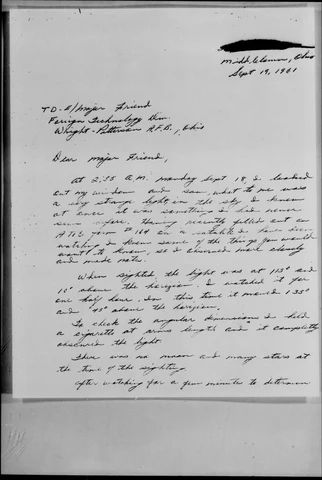 Middletown, Ohio
Sept 19, 1961
TO - Major Friend
Foreign Technology Div.
Wright-Patterson A.F.B., Ohio
Dear Major Friend,
At 2:55 A.M. Monday Sept 18, I looked
out my window and saw, what to me was
a very strange light, in the sky. I knew
at once it was something I had never
seen before. Having recently filled out an
ATIC form # 164 on a satellite I have been
watching I knew some of the things you would
want to know, so I observed more closely
and made notes.
When sighted the light was at 115° and
10° above the horizon. I watched it for
one half hour. In this time it moved 135°
and 45° above the horizon.
To check the angular dimensions I held
a cigarette at arms length and it completely
obscured the light.
There was no moon and many stars at
the time of the sighting.
After watching for a few minutes to determine